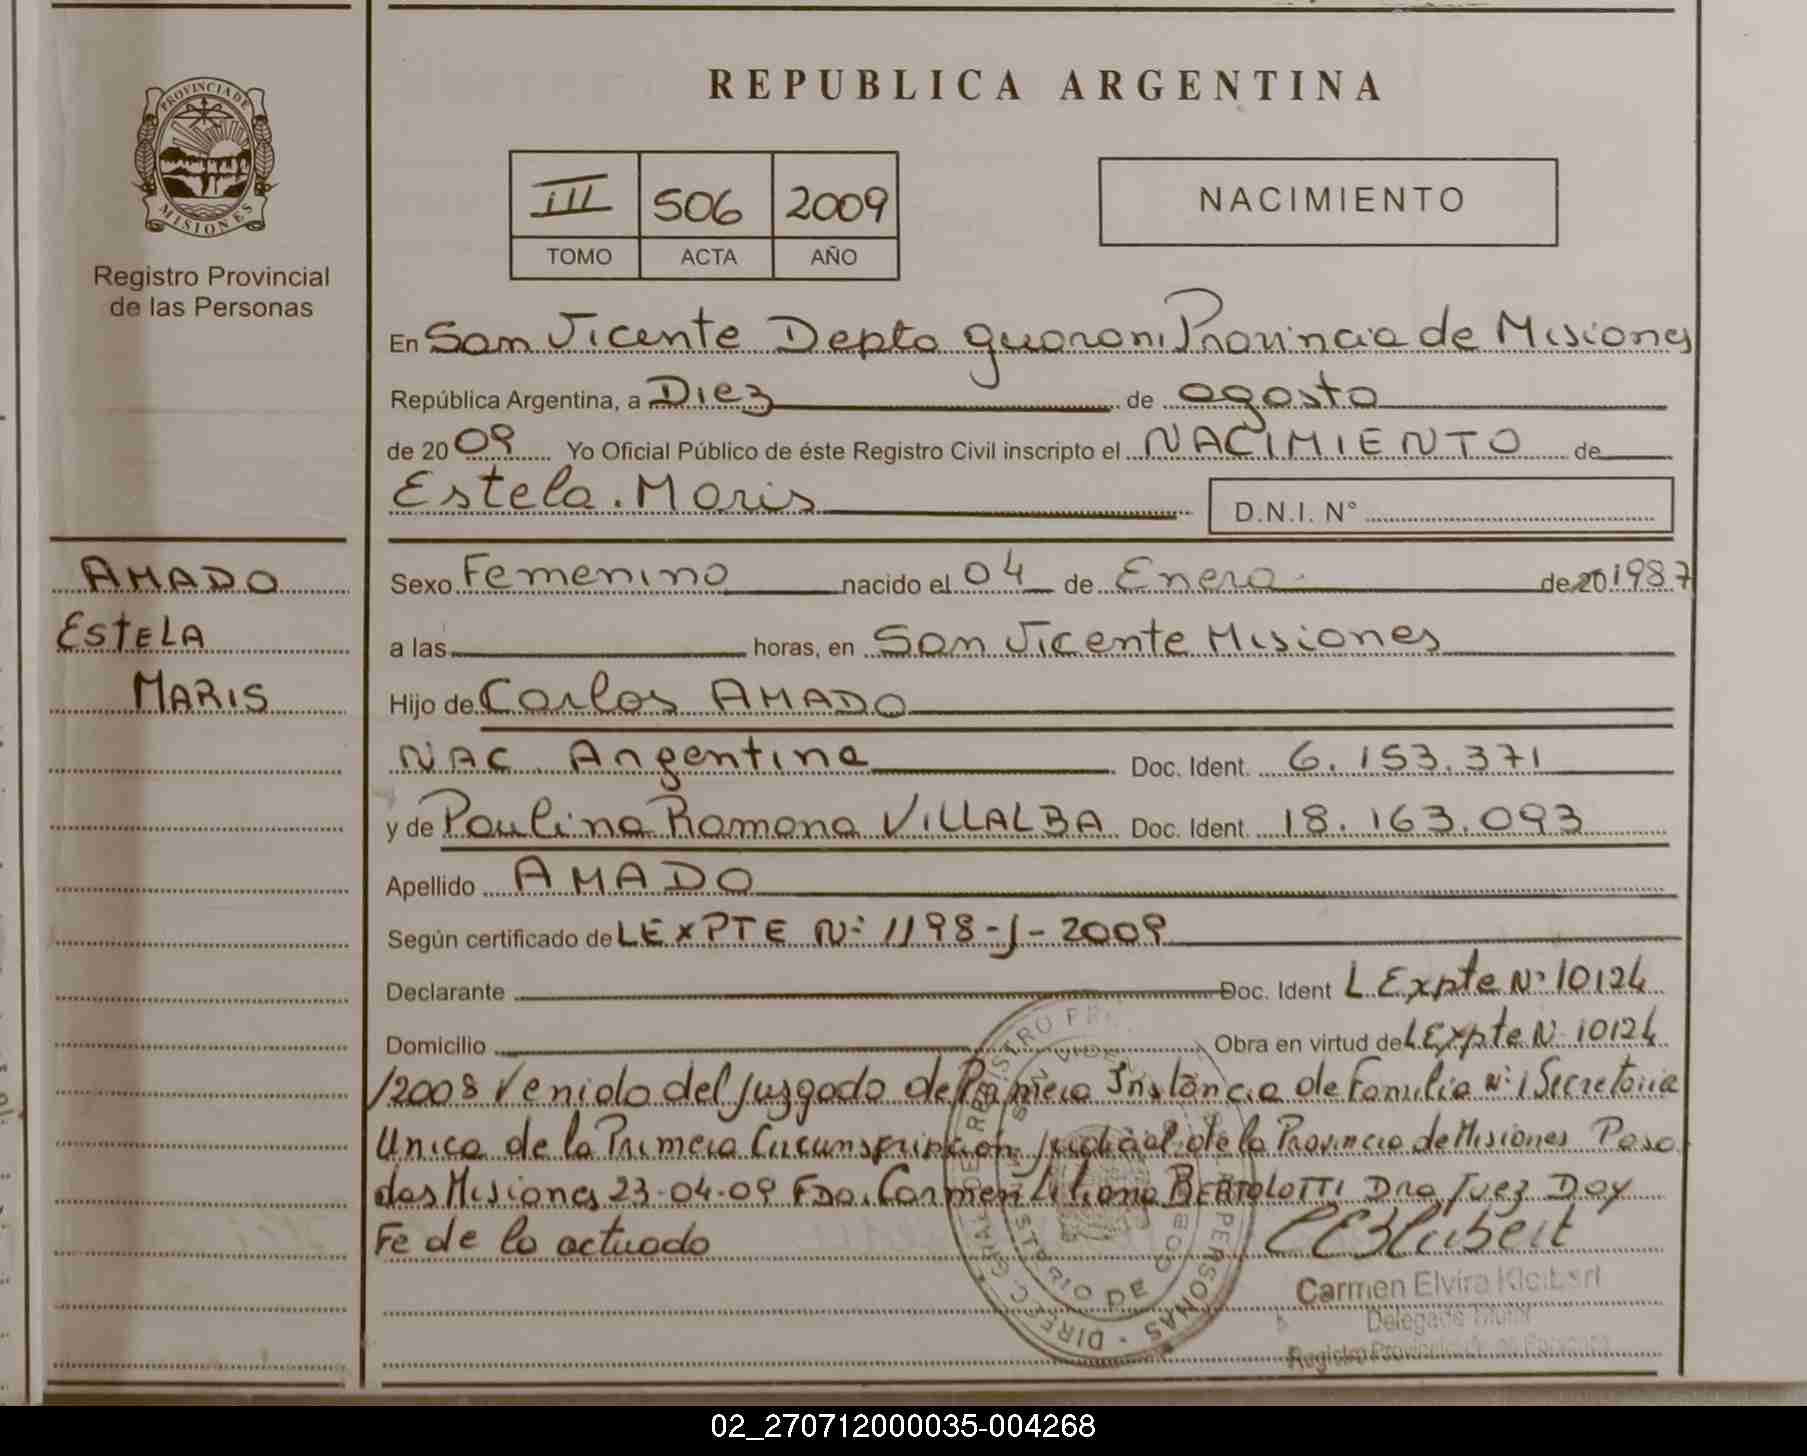 PROVINCIA DE
MISIONES
Registro Provincial
de las Personas
REPUBLICA ARGENTINA
III 506 2009
TOMO ACTA AÑO
NACIMIENTO
En San Vicente Depto guarani Provincia de Misiones
República Argentina, a Diez de agosto
de 2009 Yo Oficial Público de éste Registro Civil inscripto el NACIMIENTO de
Estela Maris D.N.I. N°
AMADO
ESTELA
MARIS
Sexo Femenino nacido el 04 de Enero de 20 1987
a las horas, en San Vicente Misiones
Hijo de Carlos AMADO
NAC Argentina Doc. Ident. 6.153.371
y de Paulina Ramona VILLALBA Doc. Ident. 18.163.093
Apellido AMADO
Según certificado de LEXPTE N: 1198-J-2009
Declarante Doc. Ident L Expte N: 10124
Domicilio Obra en virtud de LExpte N 10124
/2008 Venido del Juzgado de Primera Instancia de Familia N: 1 Secretaria
Unica de la Primera Circunscripcion Judicial de la Provincia de Misiones Posa
das Misiones 23-04-09 FDO. Carmen Liliana BERTOLOTTI Dra Juez Doy
Fe de lo actuado
Carmen Elvira
Delegada Titular
Registro Provincial de las Personas
DIREC. GRAL. DE REGISTRO PERSONAS
02_270712000035-004268